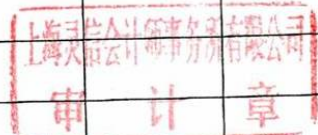 上海灵信会计师事务所有限公司
审计章